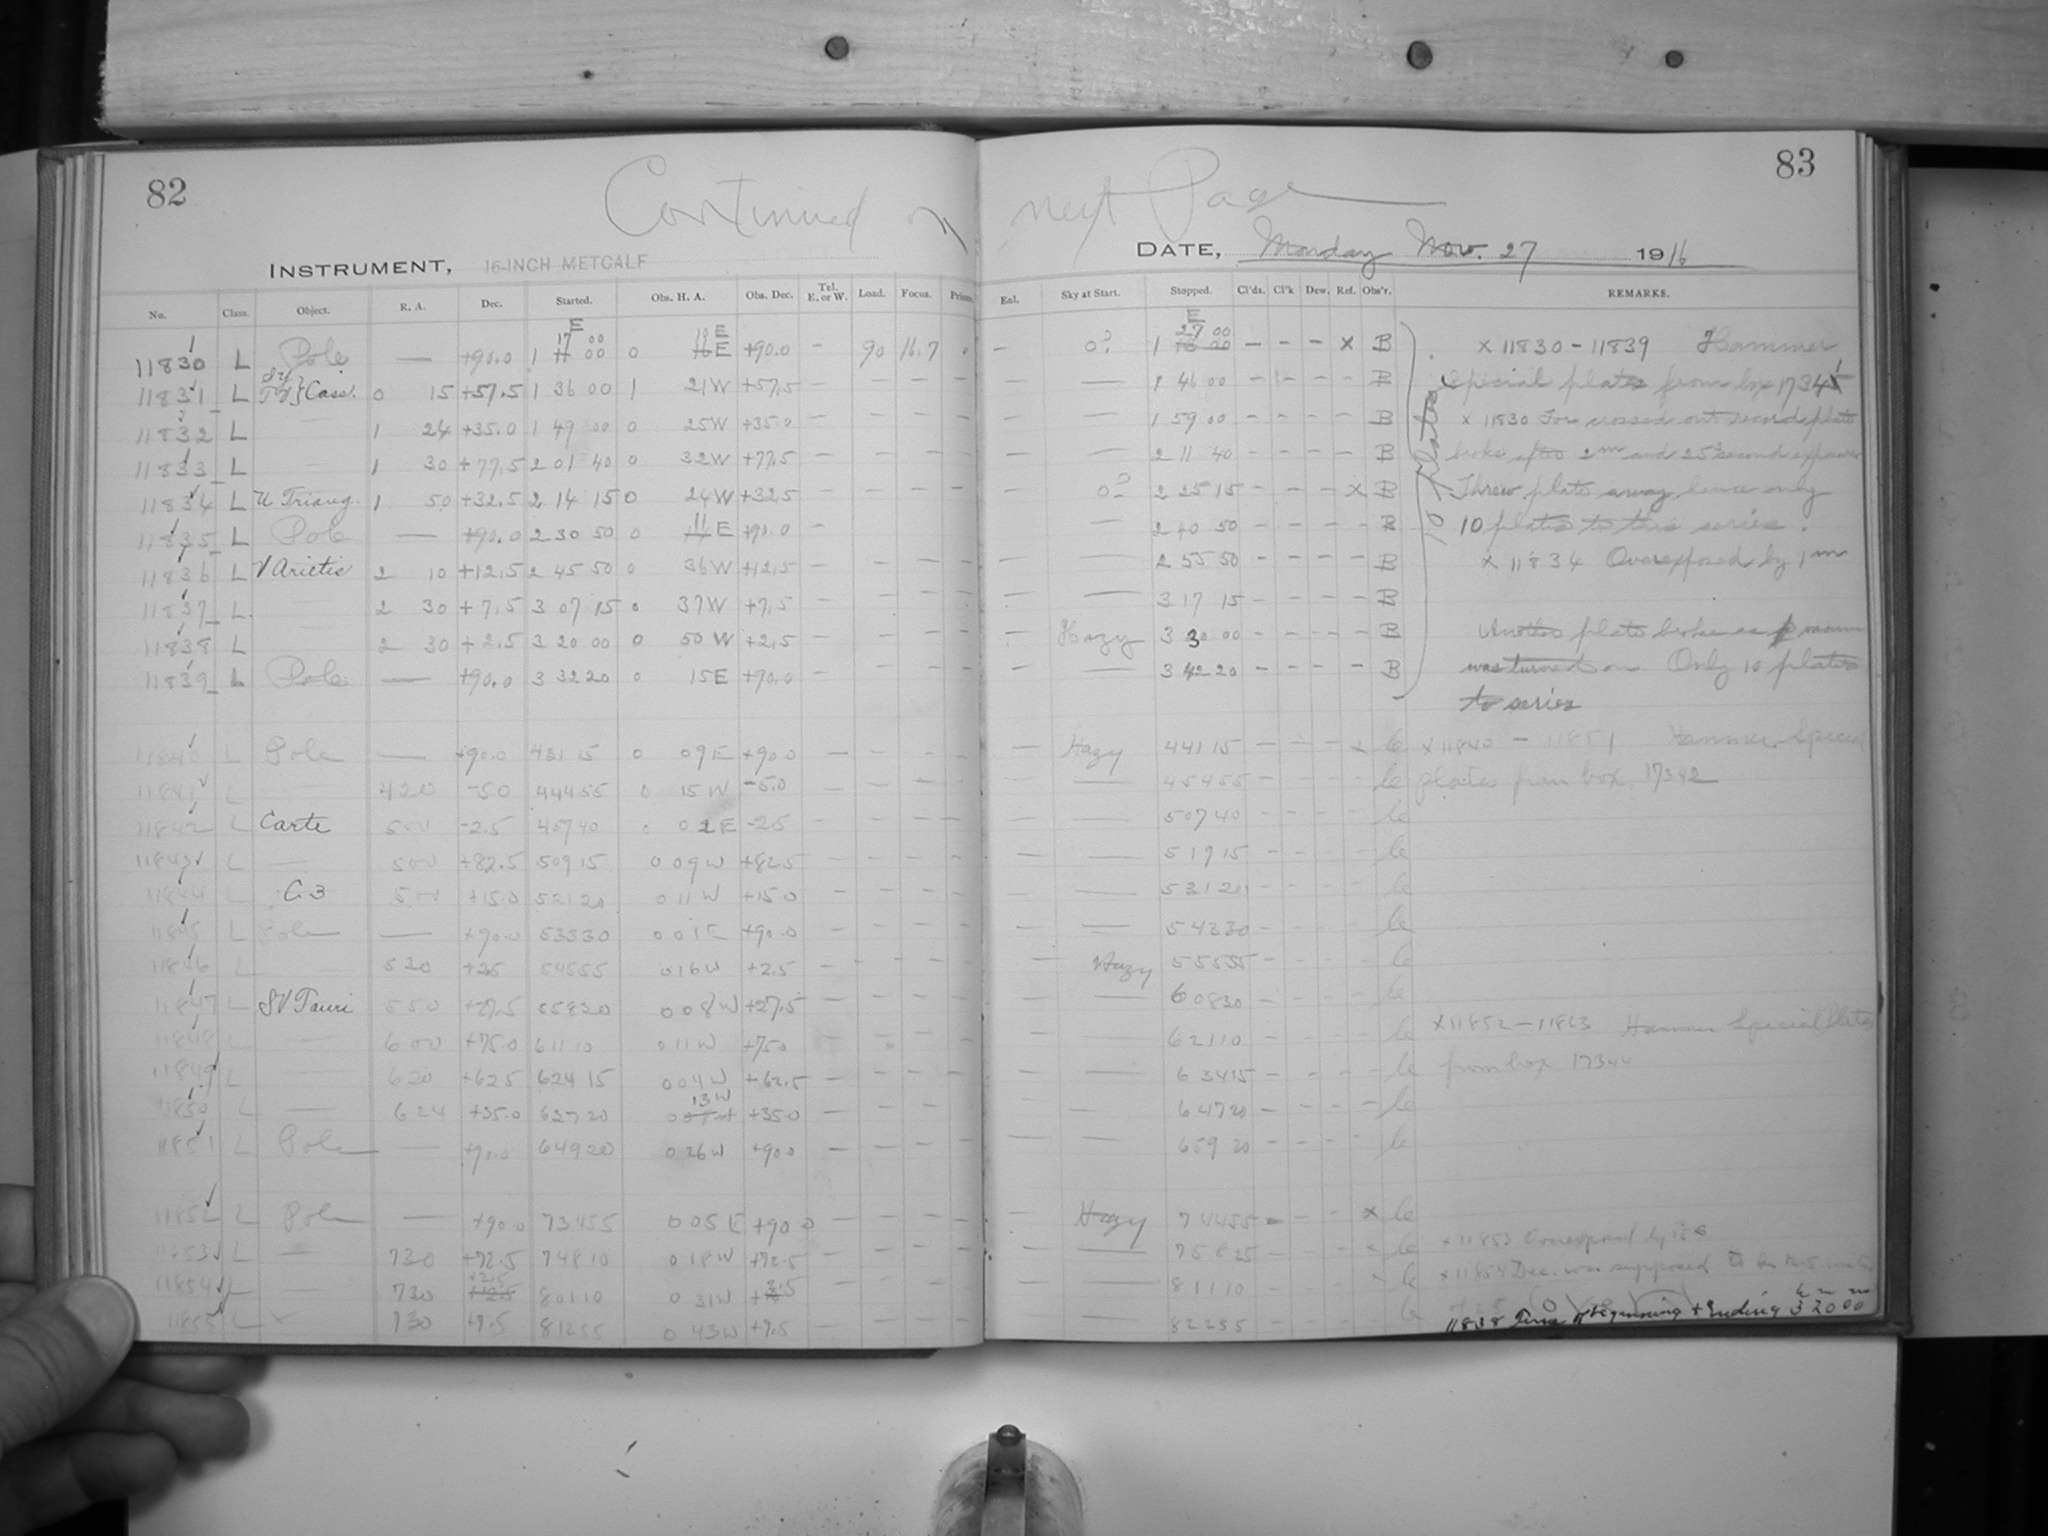 82
83
Continued on next Page
INSTRUMENT, 16-INCH METCALF
DATE, Monday Nov. 27 1916
No. Class. Object. R. A. Dec. Started. Obs. H. A. Obs. Dec. Tel. E. or W. Load. Focus. Prism.
Eal. Sky at Start. Stopped. Cl'ds. Cl'k Dew. Ref. Obs'r. REMARKS.
11830 L Pole — +90.0 1 17 00 0 E +90.0 - 90 16.7 - 0? 1 27 00 - - - x B x 11830 - 11839 Hammer
11831 L TV Cass. 0 15 +57.5 1 36 00 1 21W +57.5 - - - - — 1 46 00 - - - - B Special plates from box 17345
11832 L — 1 24 +35.0 1 49 00 0 25W +35.0 - - - - — 1 59 00 - - - - B x 11830 For crossed out record plate
11833 L — 1 30 +77.5 2 01 40 0 32W +77.5 - - - - — 2 11 40 - - - - B broke after 2m and 25 second exposure
11834 L U Triang. 1 50 +32.5 2 14 15 0 24W +32.5 - - - - 0? 2 25 15 - - - x B Threw plate away, hence only
11835 L Pole — +90.0 2 30 50 0 11 E +90.0 - — 2 40 50 - - - - B 10 plates to this series.
11836 L V Arietis 2 10 +12.5 2 45 50 0 36W +12.5 - - - - — 2 55 50 - - - - B x 11834 Overexposed by 1m
11837 L — 2 30 +7.5 3 07 15 0 37W +7.5 - - - - — 3 17 15 - - - - B
10 plates
11838 L — 2 30 +2.5 3 20 00 0 50 W +2.5 - - - - Hazy 3 30 00 - - - - B Another plate broke as
11839 L Pole — +90.0 3 32 20 0 15E +90.0 - - - - — 3 42 20 - - - - B was turned on. Only 10 plates
to series
11840 L Pole — +90.0 4 31 15 0 09E +90.0 - - - - Hazy 4 41 15 - - - x le x 11840 - 11851 Hammer Special
11841 L — 4 20 -5.0 4 44 55 0 15W -5.0 - - - - — 4 54 55 - - - - le plates from box 17342
11842 L Carte 5 00 -2.5 4 57 40 0 02E -2.5 - - - - — 5 07 40 le
11843 L — 5 00 +82.5 5 09 15 0 09W +82.5 - - - - — 5 19 15 - - - - le
11844 L C.3 5 00 +15.0 5 21 20 0 11W +15.0 - - - - — 5 31 20 - - - le
11845 L Pole — +90.0 5 33 30 0 01E +90.0 - - - - — 5 43 30 - - - - le
11846 L 5 30 +2.5 5 45 55 0 16W +2.5 - - - - Hazy 5 55 55 - - - - le
11847 L SV Tauri 5 50 +27.5 5 58 30 0 08W +27.5 - - - - — 6 08 30 - - - - le
11848 L — 6 00 +75.0 6 11 10 0 11W +75.0 - - - - — 6 21 10 - - - - le x 11852 - 11863 Hammer Special Plates
11849 L — 6 20 +62.5 6 24 15 0 04W +62.5 - - - - — 6 34 15 - - - - le from box 17344
11850 L — 6 24 +35.0 6 37 20 0 13W +35.0 - - - - — 6 47 20 - - - - le
11851 L Pole — +90.0 6 49 20 0 26W +90.0 - - - - — 6 59 20 - - - - le
11852 L Pole — +90.0 7 34 55 0 05E +90.0 - - - - Hazy 7 44 55 - - - x le
11853 L — 7 30 +72.5 7 48 10 0 18W +72.5 - - - - — 7 58 25 - - - x le x 11853 Overexposed by 15s
11854 L — 7 30 +2.5 8 01 10 0 31W +2.5 - - - - — 8 11 10 - - - x le x 11854 Dec. was supposed to be
11855 L 7 30 +7.5 8 12 55 0 43W +7.5 8 22 55 le
11838 Time of beginning + Ending 3 20 00